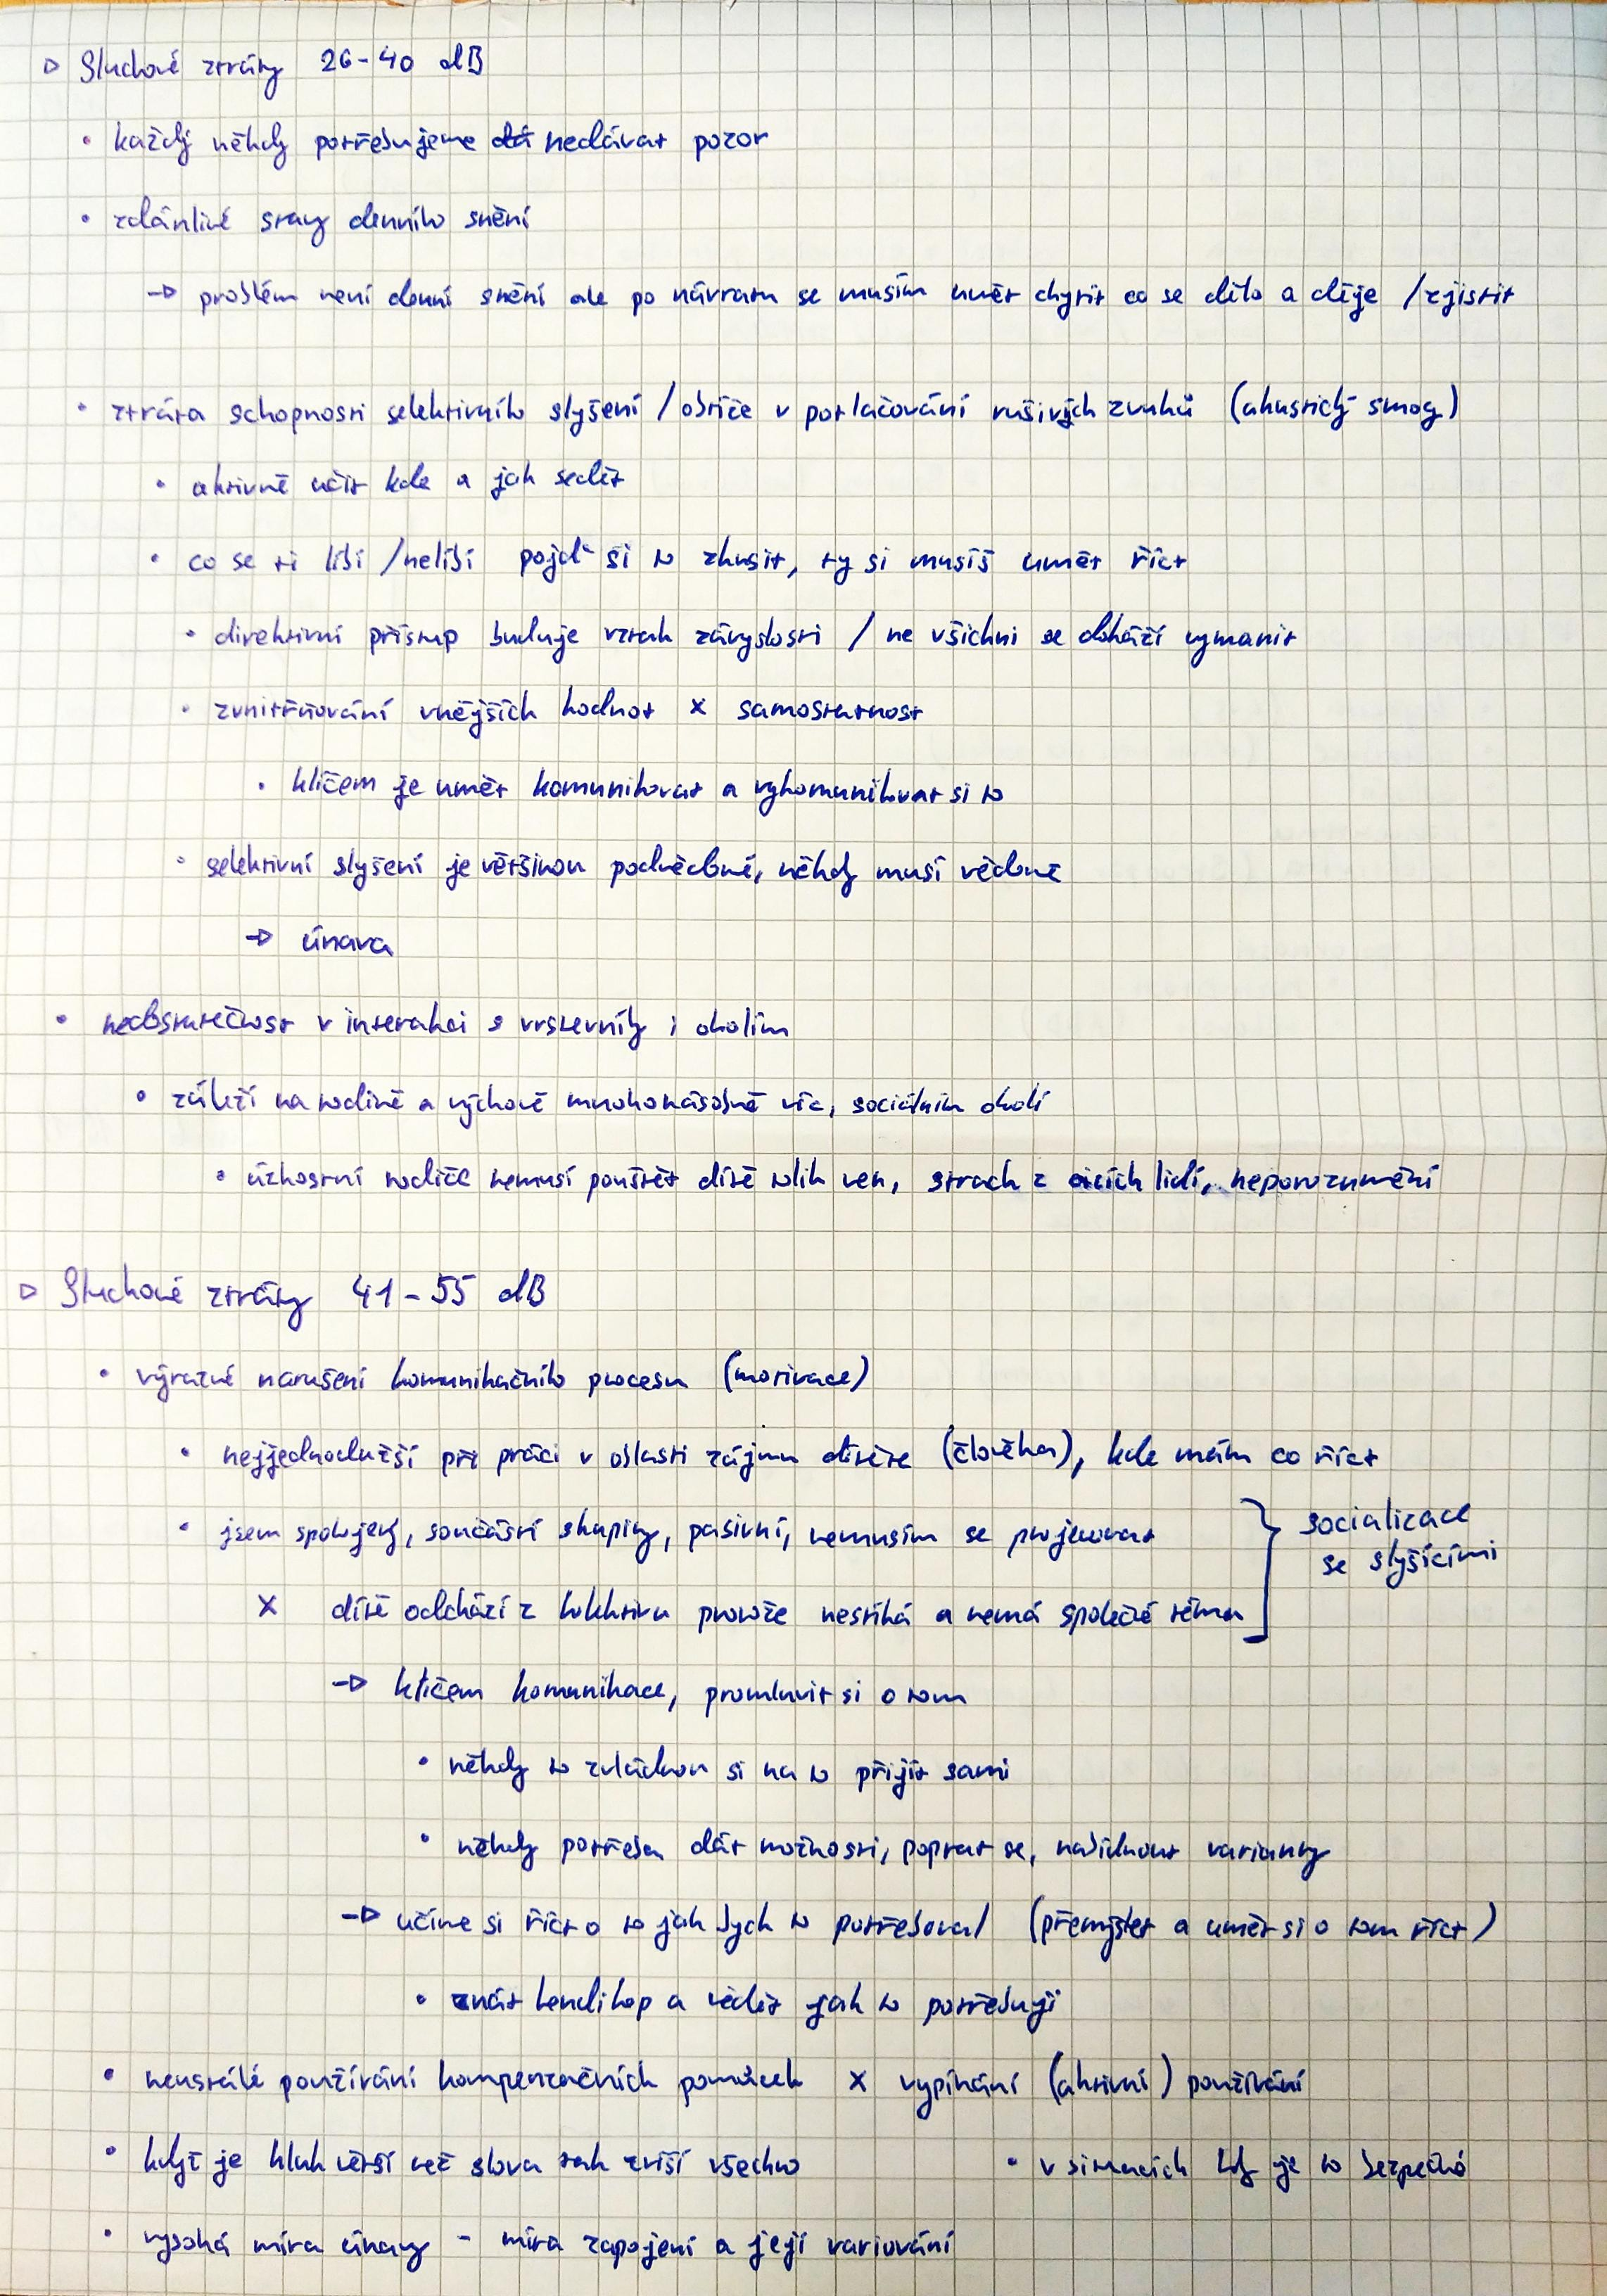 ▷ Sluchové ztráty 26-40 dB
• každý někdy potřebujeme nedávat pozor
• zdánlivé stavy denního snění
→ problém není denní snění ale po návratu se musím umět chytit co se dělo a děje / zjistit
• ztráta schopnosti selektivního slyšení / obtíže v potlačování rušivých zvuků (akustický smog)
• aktivně učit kde a jak sedět
• co se ti líbí / nelíbí pojď si to zkusit, ty si musíš umět říct
• direktivní přístup buduje vztah závyslosti / ne všichni se dokáží vymanit
• zvnitřňování vnějších hodnot x samostatnost
• klíčem je umět komunikovat a vykomunikovat si to
• selektivní slyšení je většinou podvědomé, někdy musí vědomě
→ únava
• nedostatečnost v interakci s vrstevníky i okolím
• záleží na rodině a výchově mnohonásobně víc, sociálním okolí
• úzkostní rodiče nemusí pouštět dítě tolik ven, strach z cizích lidí, neporozumění
▷ Sluchové ztráty 41-55 dB
• výrazné narušení komunikačního procesu (motivace)
• nejjednodužší při práci v oblasti zájmu dítěte (člověka), kde mám co říct
• jsem spokojený, součástí skupiny, pasivní, nemusím se projevovat
x dítě odchází z kolektivu protože nestíhá a nemá společné téma
} socializace
se slyšícími
→ klíčem komunikace, promluvit si o tom
• někdy to zvládnou si na to přijít sami
• někdy potřeba dát možnosti, poprat se, nabídnout varianty
→ učíme si říct o to jak bych to potřeboval (přemýšlet a umět si o tom říct)
• znát hendikep a vědět jak to potřebuji
• neustálé používání kompenzačních pomůcek x vypínání (aktivní) používání
• když je hluk větší než slova tak zvíší všechno
• v situacích kdy je to bezpečné
• vysoká míra únavy - míra zapojení a její variování